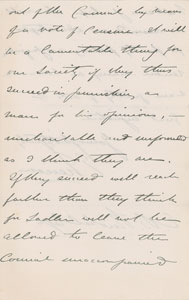 out of the Council by means
of a vote of Censure. It will
be a lamentable thing for
our Society if they thus
succeed in punishing a
man for his opinions, —
uncharitable and unfounded
as I think they are.
If they succeed will reach
farther than they think
for Sadler will not be
allowed to leave the
Council unaccompanied